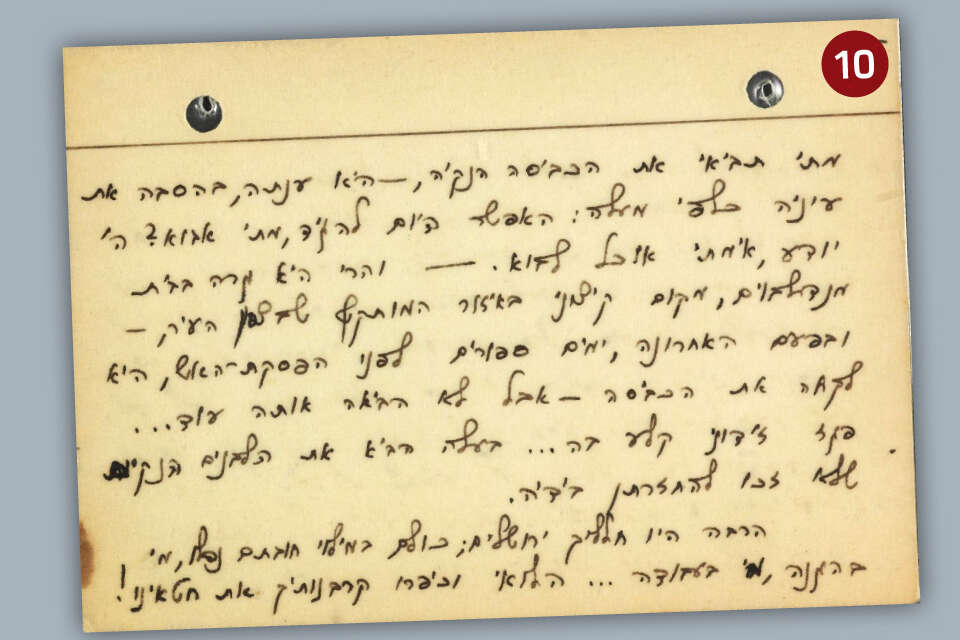 10
מתי תביאי את הכביסה הנקיה, — היא ענתה, בהסבה את
עיניה כלפי מעלה: האפשר היום להגיד, מתי אבוא? ה'
יודע, אימתי אוכל לבוא. — והרי היא גרה בבית
מנדלבוים, מקום קיצוני באיזור המותקף שבצפון העיר, —
ובפעם האחרונה, ימים ספורים לפני הפסקת-האש, היא
לקחה את הכביסה — אבל לא הביאה אותה עוד...
פגז זידוני קלע בה... בעלה הביא את הלבנים הנקיות
שלא זכו להחזרתן בידיה.
הרבה היו חלליך ירושלים; כולם במילוי חובתם נפלו, מי
בהגנה, מי בעבודה ... הלואי וכיפרו קרבנותיך את חטאינו!